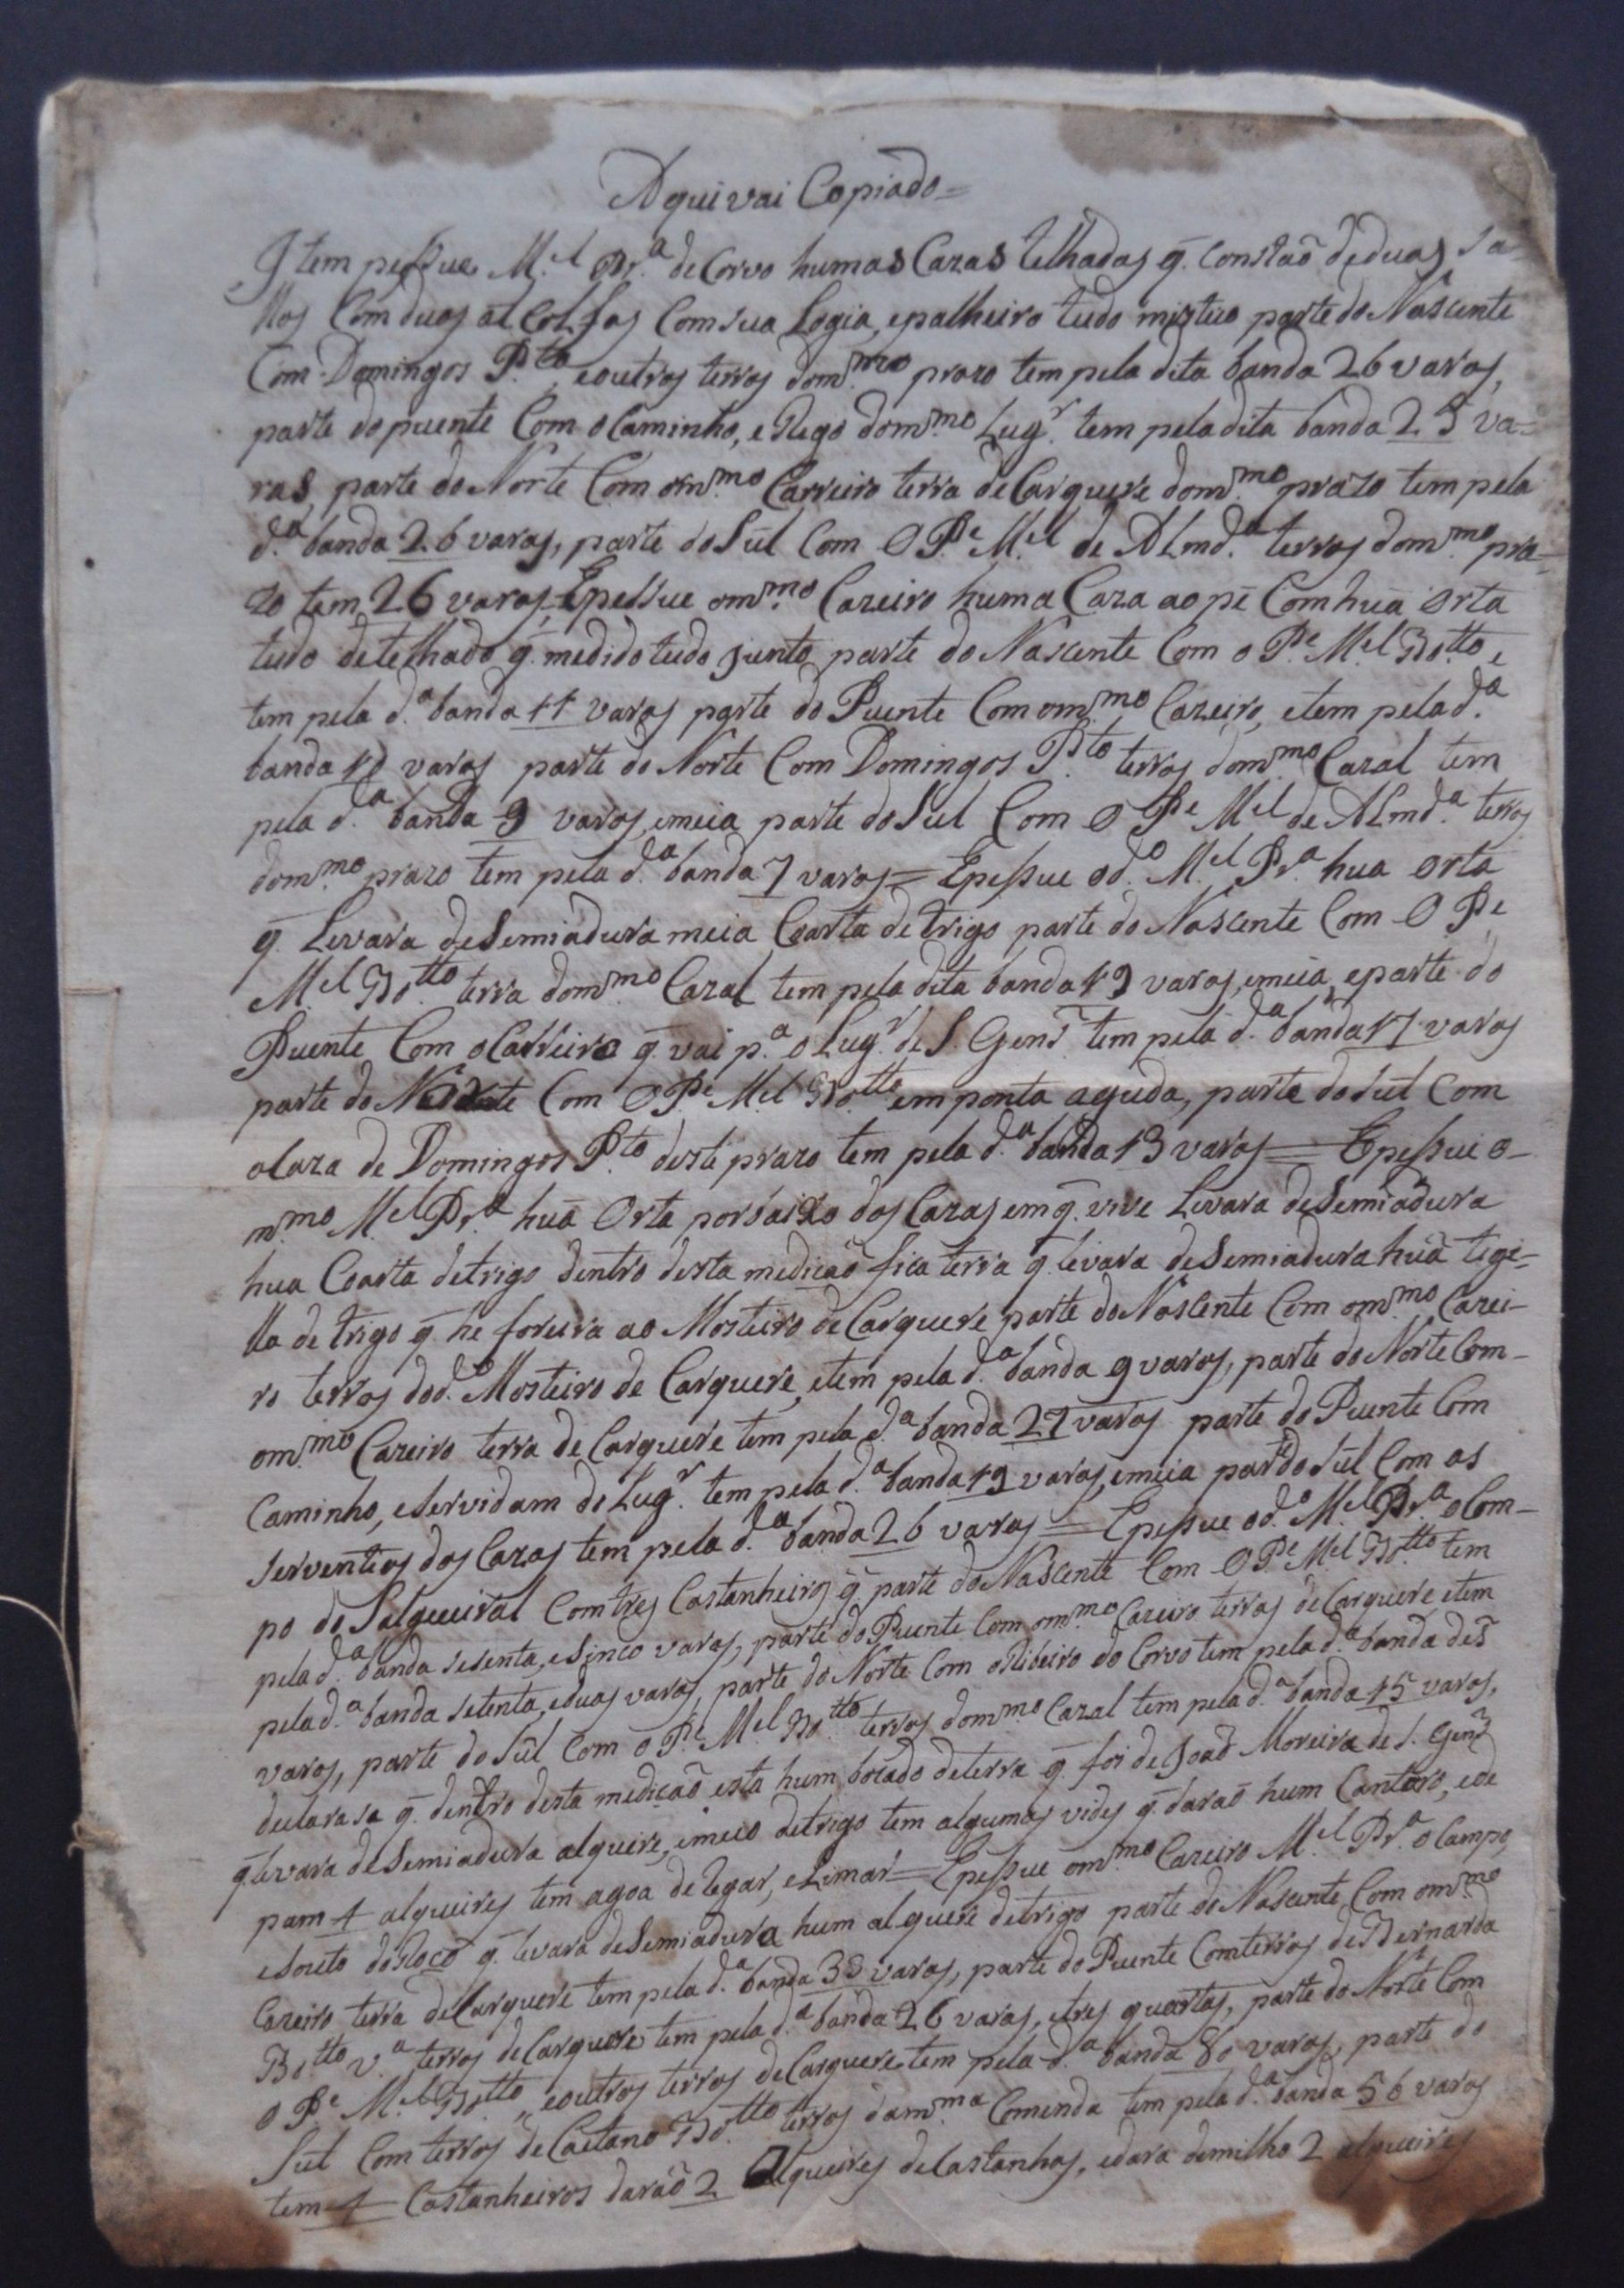 Aqui vai Copiado=
Item pessue M.el Pr.ª de Corvo humas Cazas telhadas q̃. constaõ de duas sa-
llas Com duas alcolfas Com sua Logia, e palheiro tudo mistico parte do Nascente
Com Domingos P.to e outras terras dom.mo prazo tem pela dita banda 26 varas,
parte do puente Com o Caminho, e Rego dom.mo Lug.r tem pela dita banda 25 va-
ras, parte do Norte Com om.mo Carreiro terra de Carquere dom.mo prazo tem pela
d.ª banda 26 varas, parte do Sul Com O P.e M.el de ALmd.ª terras dom.mo pra-
zo tem 26 varas, E pessue om.mo Cazeiro huma Caza ao pé Com huã Orta
tudo de telhado q̃. medido tudo junto parte do Nascente Com o P.e M.el Bo.tto, e
tem pela d.ª banda 11 varas parte do Puente Com om.mo Cazeiro, e tem pela d.ª
banda 10 varas parte do Norte Com Domingos P.to terras dom.mo Cazal tem
pela d.ª banda 9 varas, e meia parte do Sul Com O P.e M.el de ALmd.ª terras
dom.mo prazo tem pela d.ª banda 7 varas= E pessue od.º M.el Pr.ª hua Orta
q̃. Levara de Semiadura meia Coarta de trigo parte do Nascente Com O P.e
M.el Bo.tto terra dom.mo Cazal tem pela dita banda 19 varas, e meia, e parte do
Puente Com o Carreiro q̃. vai p.ª o Lug.r de S. Gens tem pela d.ª banda 17 varas
parte do Norte Com O P.e M.el Bo.tto em ponta aguda, parte do Sul Com
a Caza de Domingos P.to deste prazo tem pela d.ª banda 13 varas= E pessui o
m.mo M.el Pr.ª huã Orta por baixo das Cazas em q̃. vive Levara de Semiadura
hua Coarta de trigo dentro desta mediçaõ fica terra q̃. levara de Semiadura huã tige-
lla de trigo q̃. he foreira ao Mosteiro de Carquere parte do Nascente Com om.mo Cazei-
ro terras dod.º Mosteiro de Carquere, e tem pela d.ª banda 9 varas, parte do Norte Com
om.mo Cazeiro terra de Carquere tem pela d.ª banda 27 varas parte do Puente Com
Caminho, e Servidam do Lug.r tem pela d.ª banda 19 varas, e meia parte do Sul Com as
serventias das Cazas tem pela d.ª banda 26 varas= E pessue od.º M.el Pr.ª o Com-
po do Salgueiral Com tres Castanheiros q̃. parte do Nascente Com O P.e M.el Bo.tto tem
pela d.ª banda sesenta, e sinco varas, parte do Puente Com om.mo Cazeiro terras de Carquere e tem
pela d.ª banda setenta, e duas varas, parte do Norte Com o Ribeiro do Corvo tem pela d.ª banda des
varas, parte do Sul Com o P.e M.el Bo.tto terras dom.mo Cazal tem pela d.ª banda 15 varas,
declarasa q̃. dentro desta mediçaõ esta hum bocado de terra q̃. foi de Joaõ Moreira de S. Gens
q̃. levara de Semiadura alqueire, e meio de trigo tem algumas vides q̃. daraõ hum Cantaro, e de
pam 4 alqueires tem agoa de Regar, e Limar= E pessue om.mo Cazeiro M.el Pr.ª o Campo,
e Souto do q̃. levara de Semiadura hum alquere de trigo parte do Nascente, Com om.mo
Cazeiro terra de Carquere tem pela d.ª banda 33 varas, parte do Puente Com terras de Bernarda
Bo.tto v.ª terras de Carquere tem pela d.ª banda 26 varas, e tres quartas, parte do Norte Com
o P.e M.el Bo.tto, e outras terras de Carquere tem pela d.ª banda 80 varas, parte do
Sul Com terras de Caetano Bo.tto terras dam.ma Comenda tem pela d.ª banda 56 varas
tem 4 Castanheiros daraõ 2 Alqueires de Castanhas, e dara de milho 2 alqueires